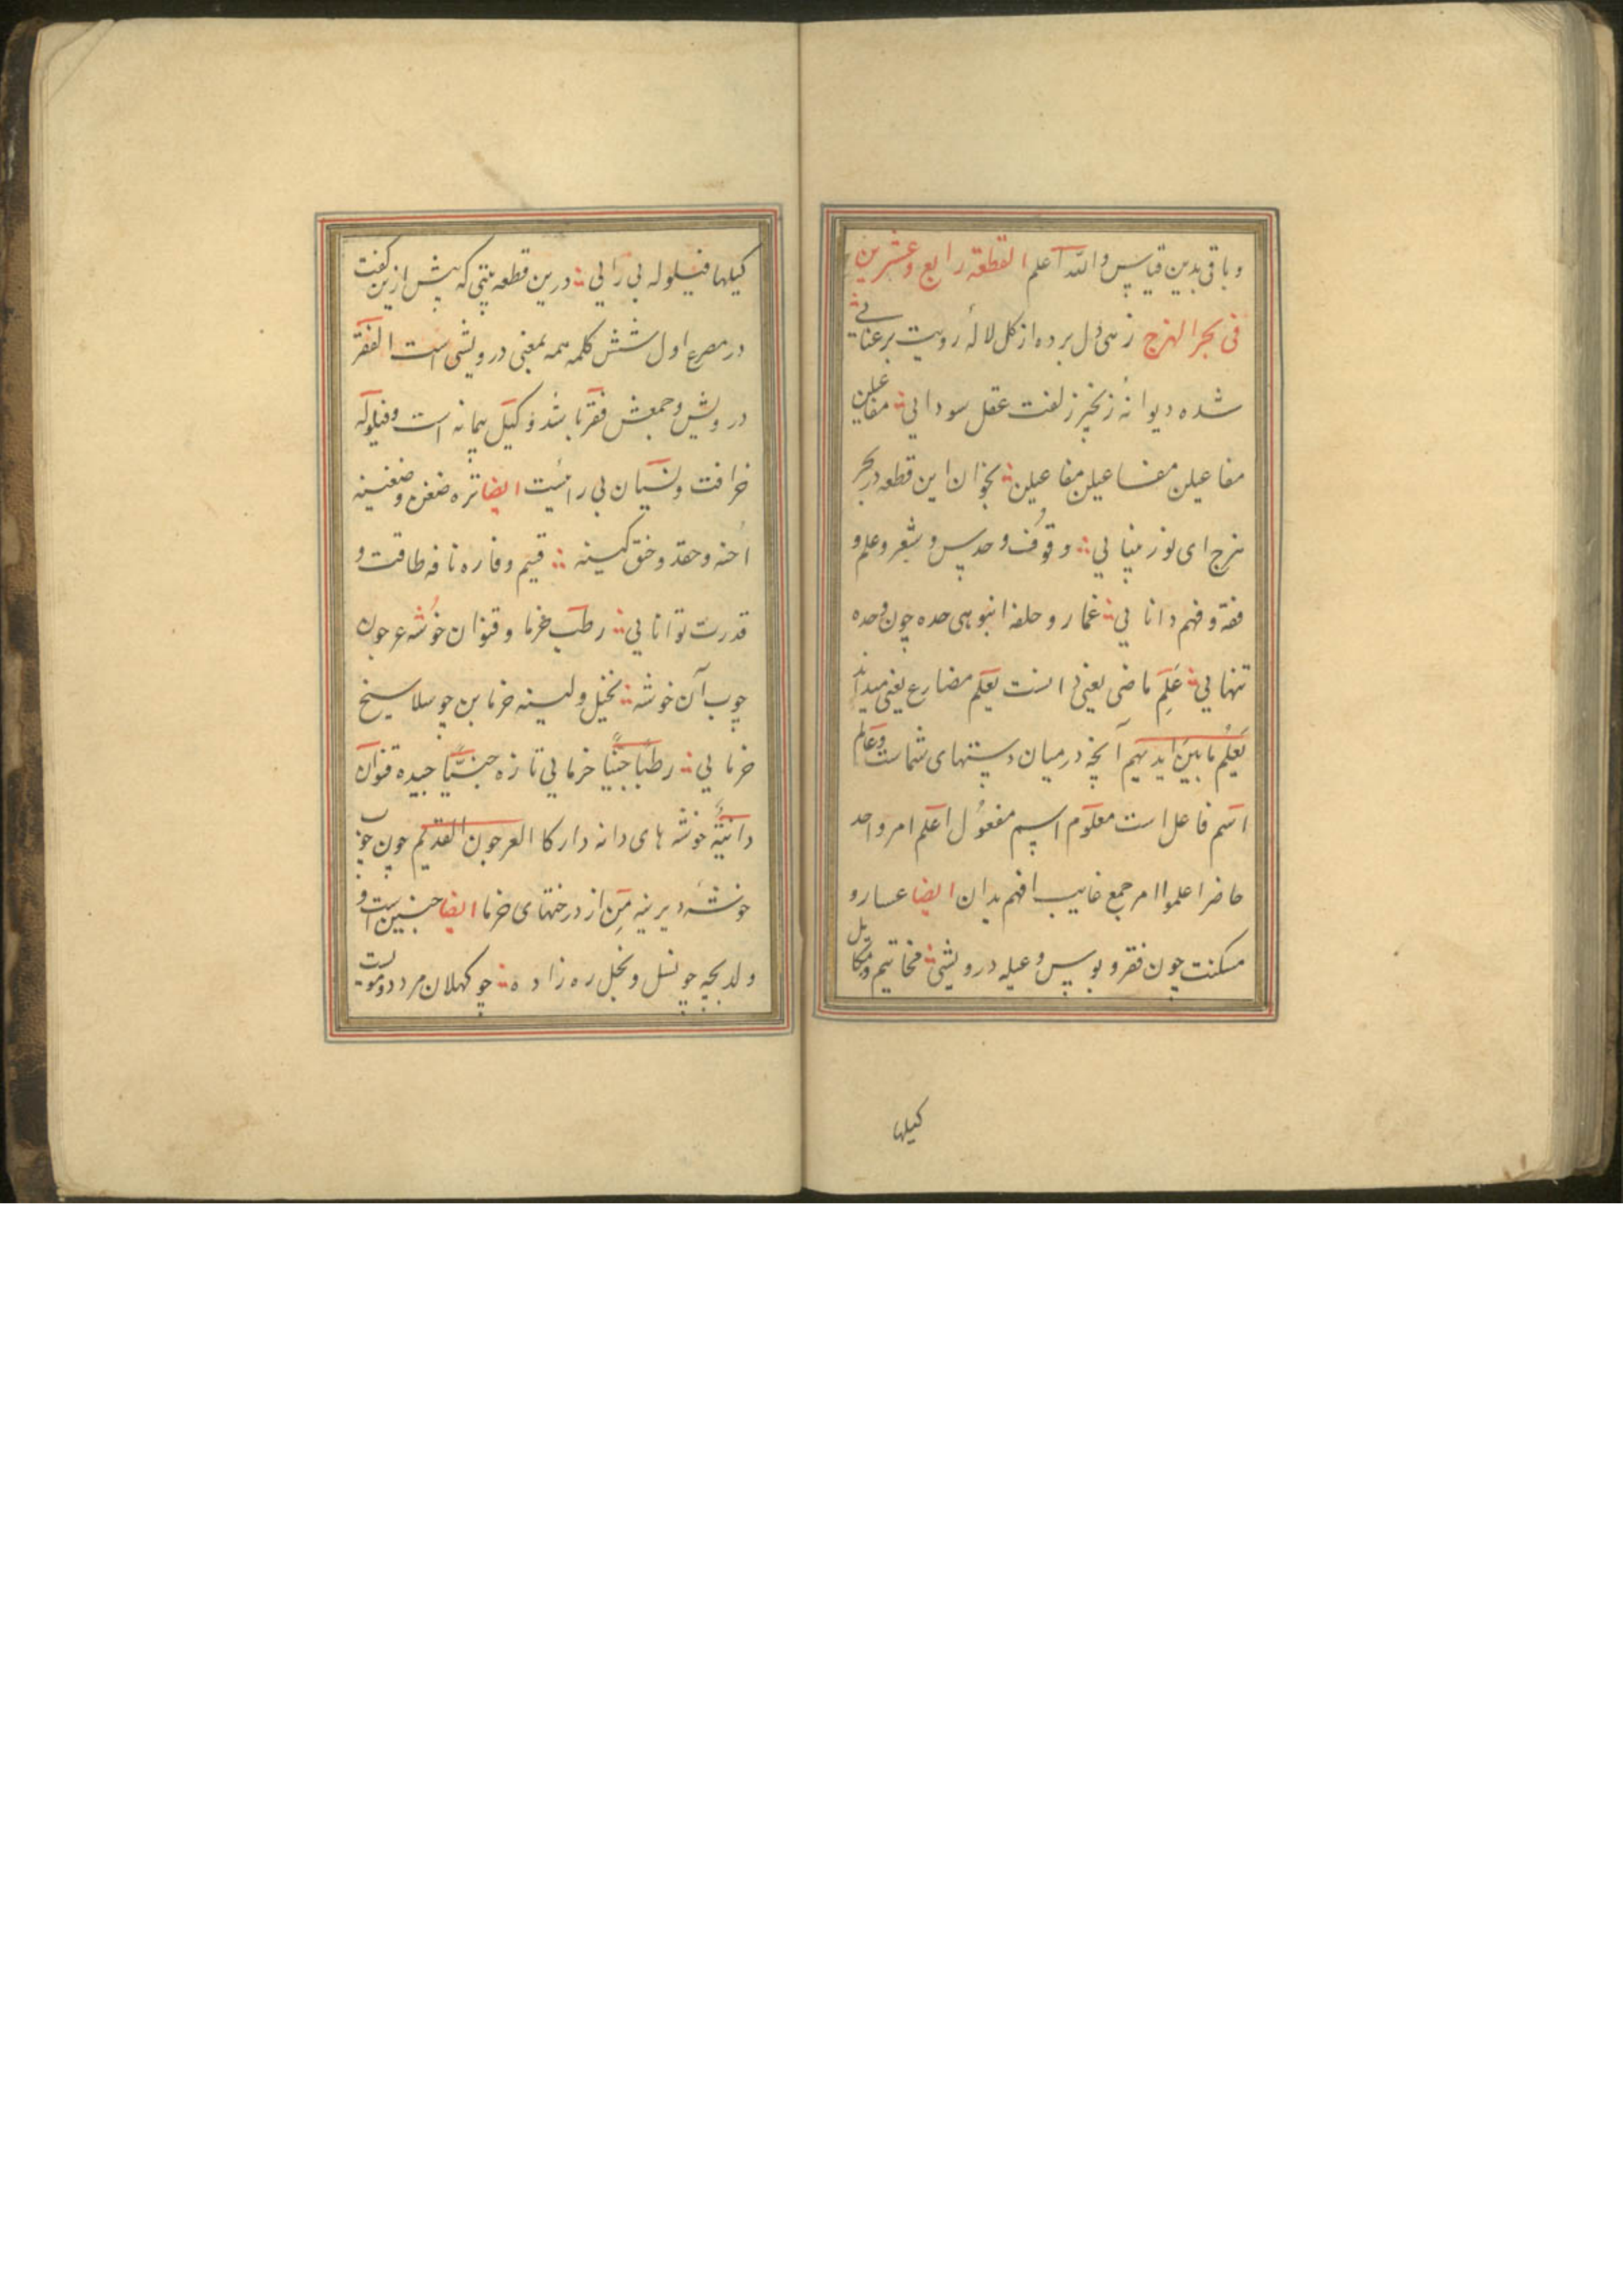 و باقی بدین قیاس والله اعلم القطعة رابع وعشرین
فی بحر الهزج زهی دل برده از کل لالۀ رویت برعنائی
شده دیوانۀ زنجیر زلفت عقل سودایی مفاعیلن
مفاعیلن مفاعیلن مفاعیلن بخوان این قطعه در بحر
هزج ای نور بینایی وقوف و حدس و شعر و علم و
فقه و فهم دانایی غمار و حلفه انبوهی حده چون وحده
تنهایی عَلِمَ ماضی یعنی دانست یعلم مضارع یعنی میداند
یَعلَمُ ما بینَ ایدیهم آنچه در میان دستهای شماست وعالم
اسم فاعل است معلوم اسم مفعول اعلم امر واحد
حاضر اعلموا امر جمع غایب افهم بدان ایضا عسار و
مسکنت چون فقر و بوس و عیله درویشی مخاتیم و مکاییل
کیلها
کیلها فیلوله بی رایی درین قطعه بیتی که پیش ازین گفت
در مصرع اول شش کلمه همه بمعنی درویشی است الفقر
درویش و جمعش فقرا باشد و کیل پیمانه است و فیلوله
خرافت و نسیان بی رائیست ایضا تره ضغن و ضغینه
اُحنه و حقد و حنق کینه قیم و فاره نافه طاقت و
قدرت توانایی رطب خرما و قنوان خوشه عرجون
چوب آن خوشه نخیل و لینه خرمابن چو سلا سیخ
خرمایی رطبًا جنیًا خرمایی تازه جنیًّا چیده قنوان
دانیةٌ خوشه های دانه دار کالعرجون القدیم چون چوب
خوشۀ دیرینه مِن از درختهای خرما ایضا جنین است و
ولد بچه چو نسل و نجل ره زاده چو کهلان مرد دومویست